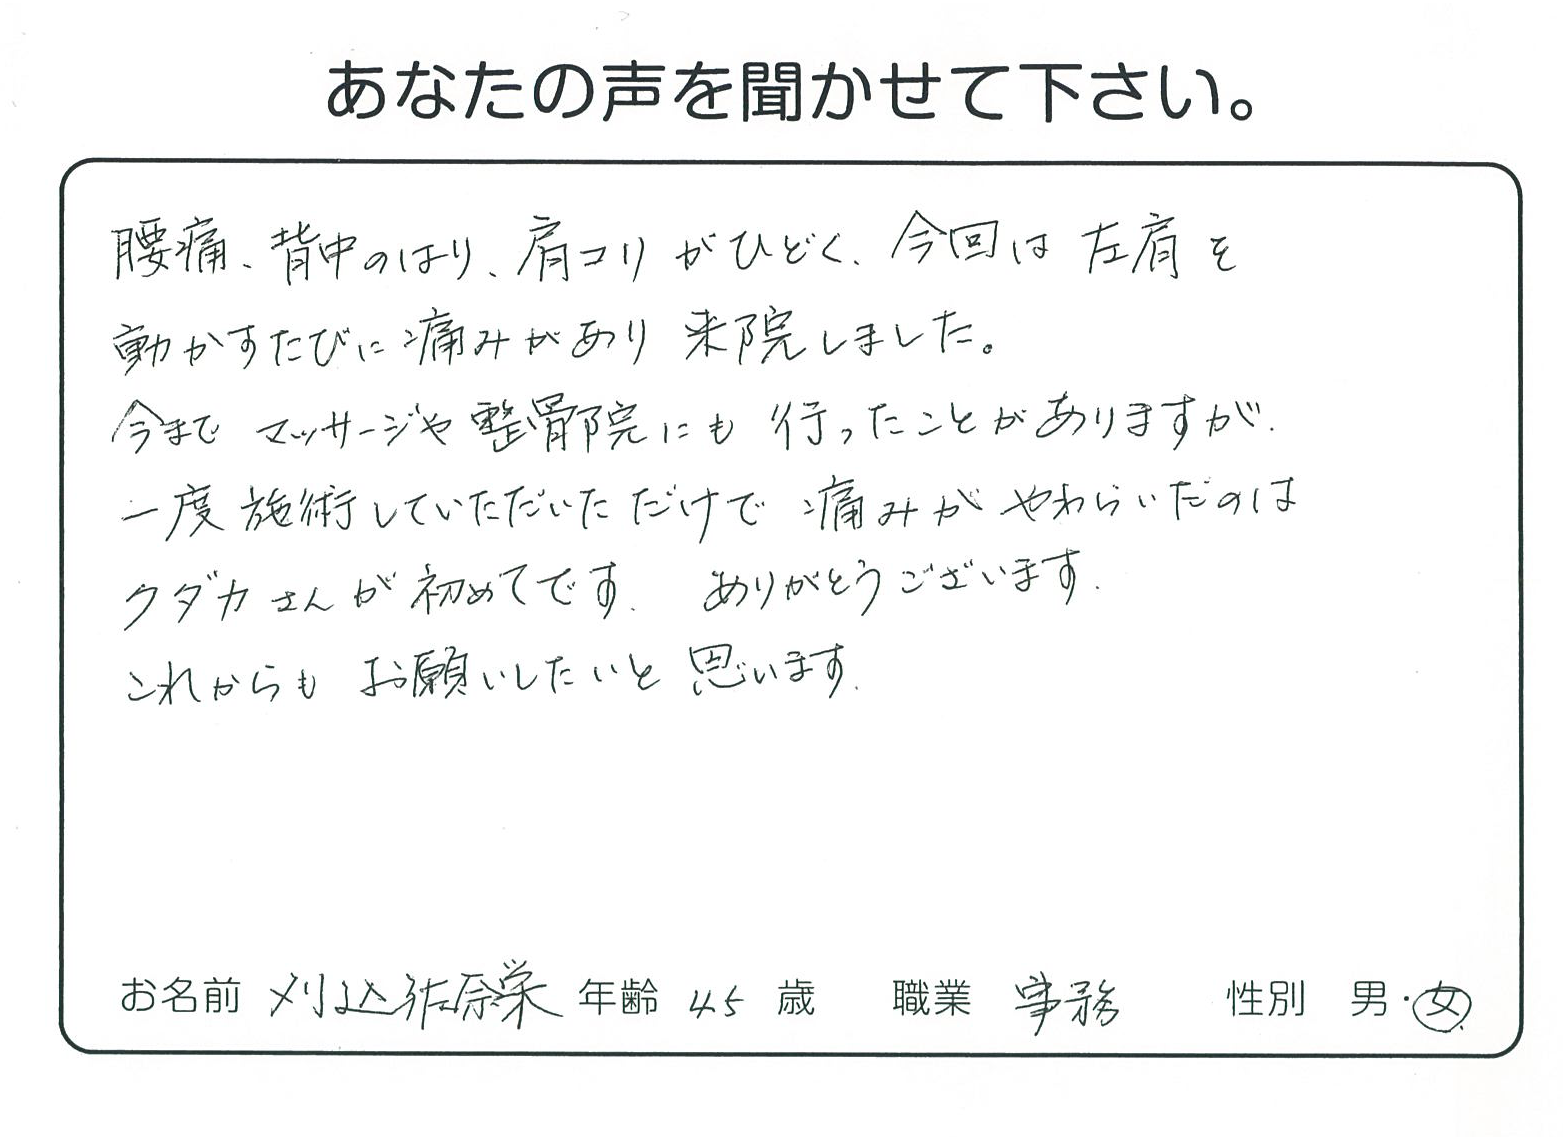 あなたの声を聞かせて下さい。
腰痛、背中のはり、肩コリがひどく、今回は左肩を
動かすたびに痛みがあり来院しました。
今まで マッサージや整骨院にも行ったことがありますが、
一度施術していただいただけで痛みがやわらいだのは
クダカさんが初めてです。 ありがとうございます。
これからもお願いしたいと思います。
お名前 刈込結奈栄 年齢 45 歳 職業 事務 性別 男・女